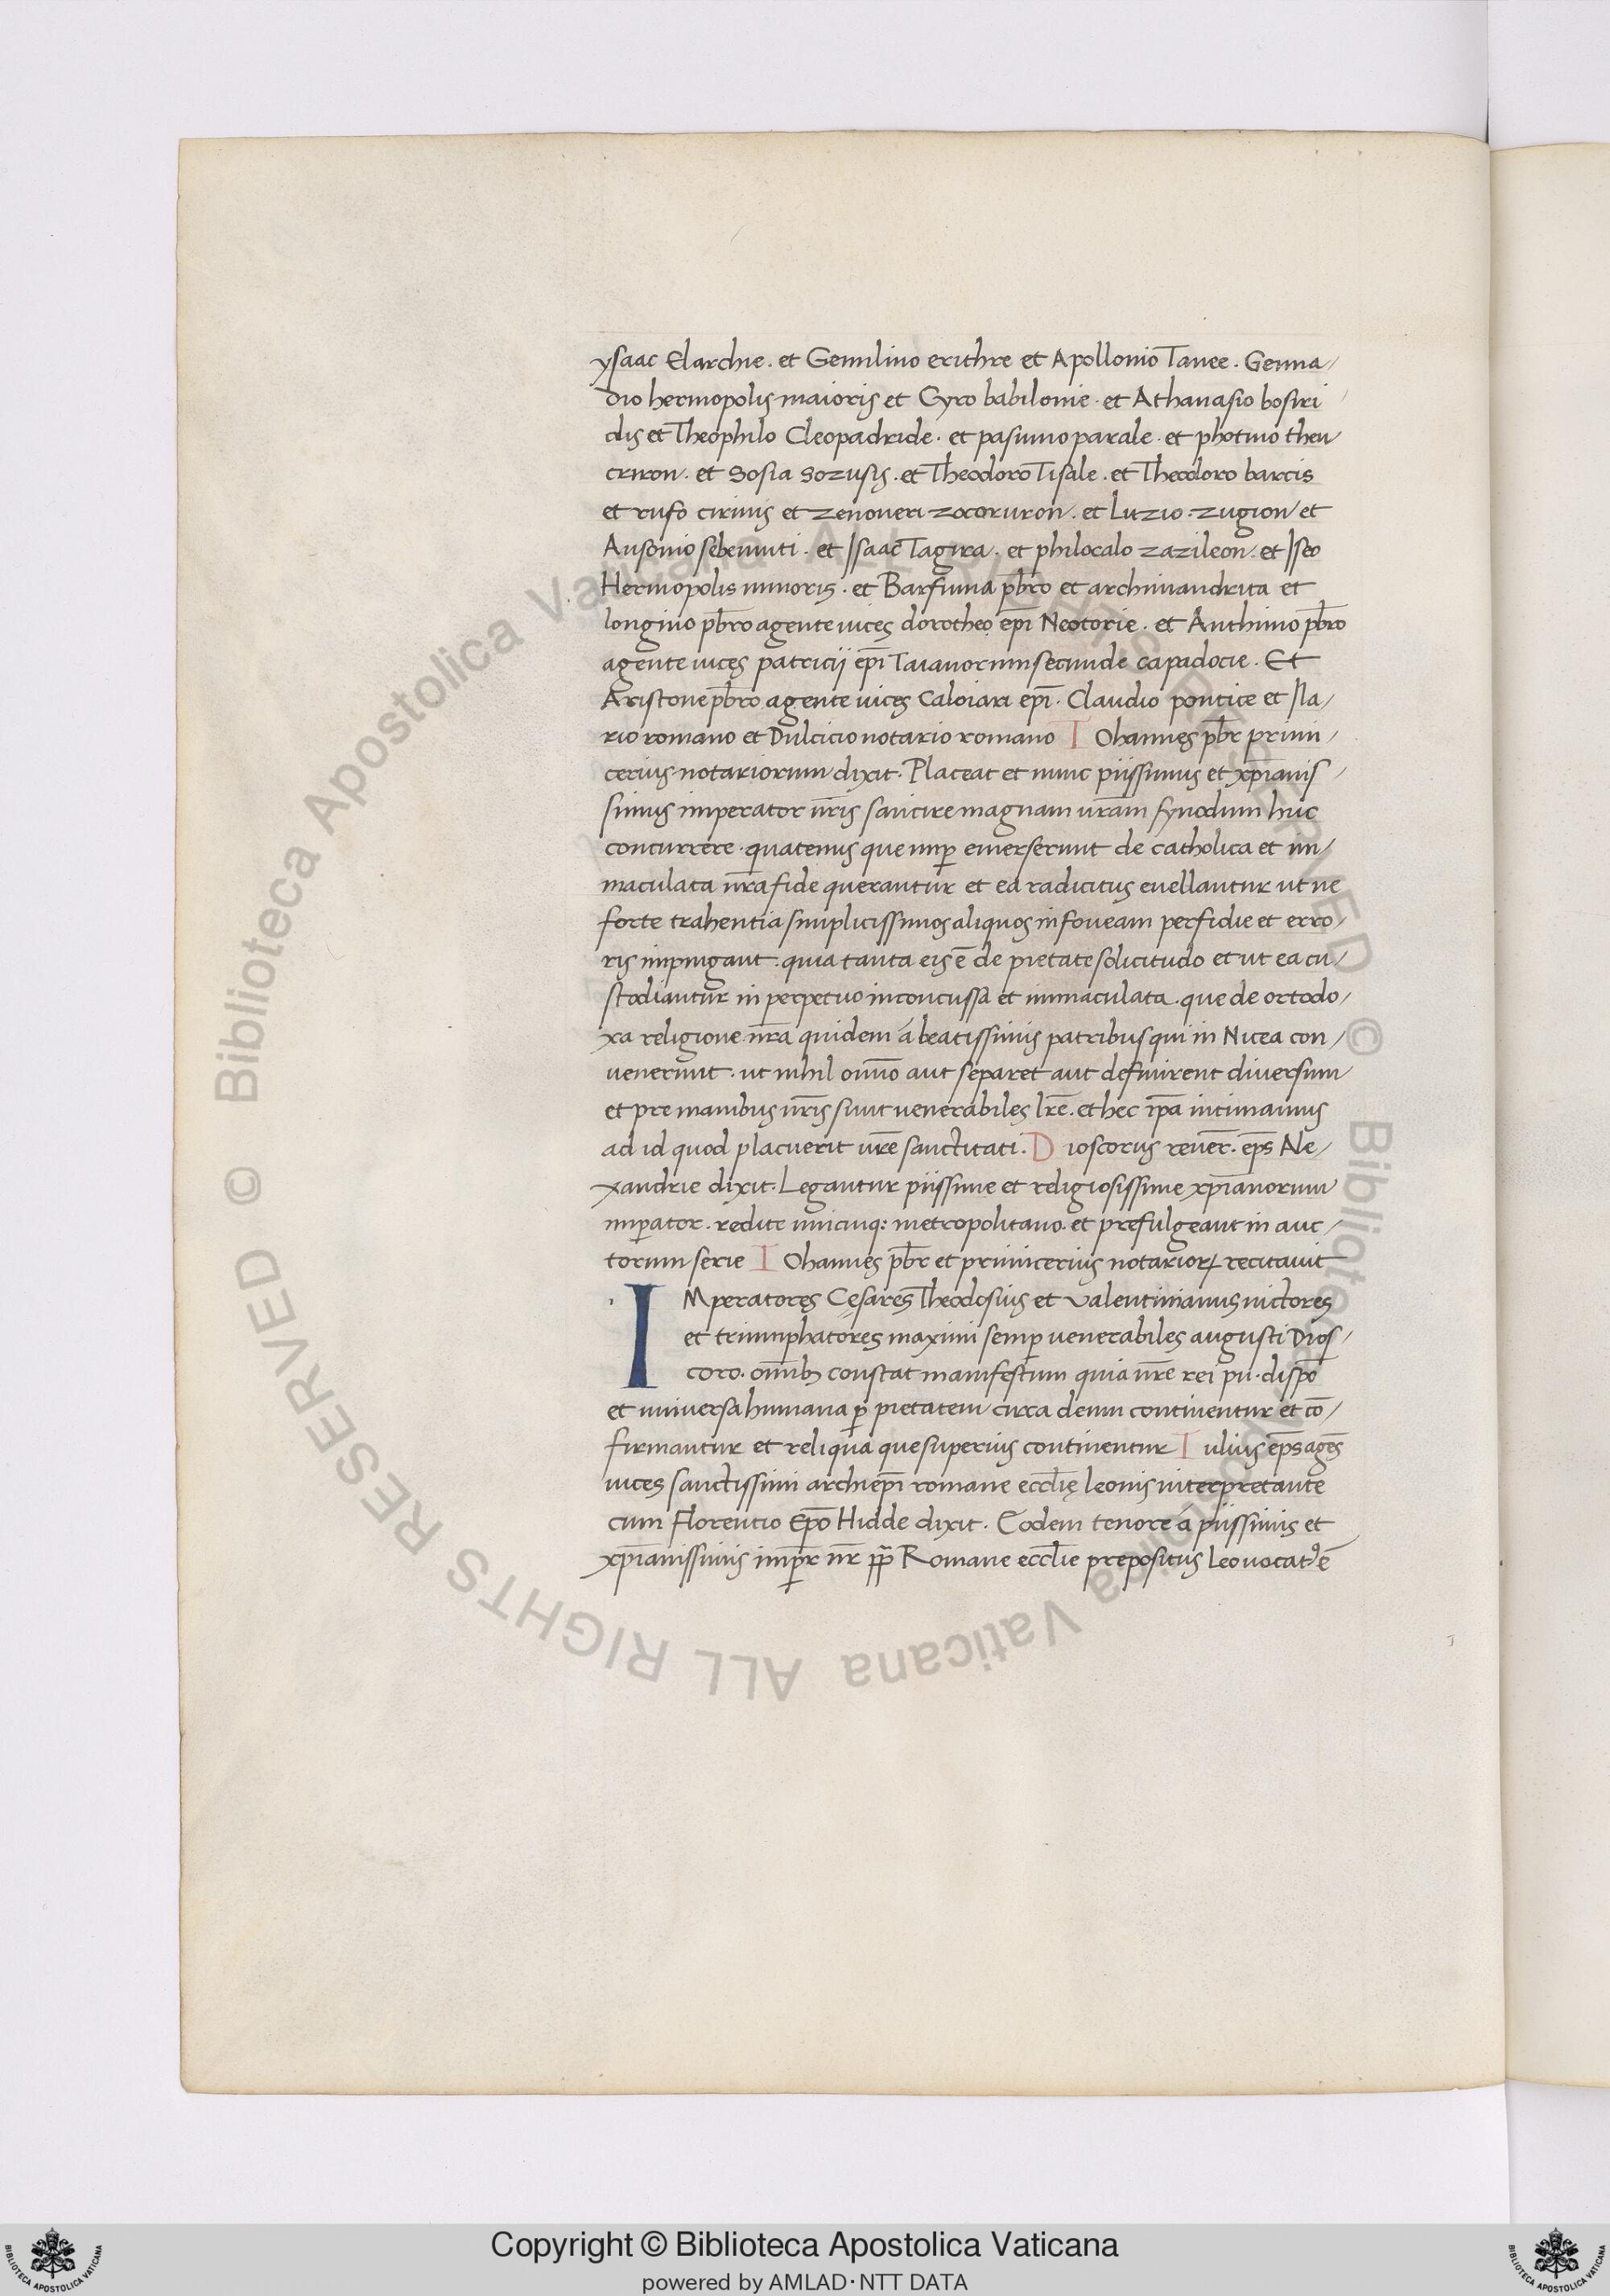 ysaac Elarchie. et Gemilino erithre et Apollonio Tanee. Genna/
dio hermopolis maioris et Cyro babilonie. et Athanasio bosiri
dis et Theophilo Cleopadride. et pasimo parale. et photino theu
criron. et Sosia Sozusis. et Theodoro Tisale. et Theodoro barcis
et rufo cirinis et zenoueri zocoruron. et Luzio. zugion et
Ausonio sebennuti. et Isaac Tagira. et philocalo zazileon. et Iseo
Hermopolis minoris. et Barsuma pb̅ro et archimandrita et
longino pb̅ro agente uices dorotheo epi̅ Neotorie. et Anthimo pb̅ro
agente uices patricij epi̅ Taianorum secunde capadocie. Et
Aristone pb̅ro agente uices Caloiari epi̅. Claudio pontice et Ila/
rio romano et Dulcicio notario romano IOhannes pb̅r primi/
cerius notariorum dixit. Placeat et nunc piissimus et xp̅ianis/
simus imperator nr̅is sancire magnam ur̅am synodum huc
concurrere. quatenus que nup̅ emerserunt de catholica et im/
maculata nr̅a fide querantur et ea radicitus euellantur ut ne
forte trahentia simplicissimos aliquos in foueam perfidie et erro/
ris impingant. quia tanta eis e̅ de pietate solicitudo et ut ea cu/
stodiantur in perpetuo inconcussa et immaculata. que de ortodo/
xa religione nr̅a quidem á beatissimis patribus qui in Nicea con/
uenerunt. ut nihil om̅o aut separet aut definirent diuersum
et pre manibus nr̅is sunt uenerabiles lr̅e. et hec ip̅a intimamus
ad id quod placuerit ur̅e sanctitati. Dioscorus reuer̅. ep̅s Ale/
xandrie dixit. Legantur piissime et religiosissime xp̅ianorum
imperator. redite unicuiq: metropolitano. et prefulgeant in auc/
torum serie IOhannes pb̅r et primicerius notarioꝝ recitauit
IMperatores Cesares Theodosius et Valentinianus uictores
et triumphatores maximi semp̅ uenerabiles augusti Dios/
coro. om̅ib; constat manifestum quia nr̅e rei pu. dispo̅
et uniuersa humana p̅ pietatem circa deum continentur et co̅/
firmantur et reliqua que superius continentur Iulius ep̅s age̅s
uices sanctissimi archiepi̅ romane eccl̅ię leonis interpretante
cum Florentio Epo̅ Hidde dixit. Eodem tenore a piissimis et
xp̅ianissimis imp̅r nr̅ pp̅ Romane eccl̅ie prepositus Leo uocatꝰ e̅
Copyright © Biblioteca Apostolica Vaticana
powered by AMLAD·NTT DATA
© Biblioteca Apostolica Vaticana ALL RIGHTS RESERVED
© Biblioteca Apostolica Vaticana ALL RIGHTS RESERVED
BIBLIOTECA APOSTOLICA VATICANA
BIBLIOTECA APOSTOLICA VATICANA